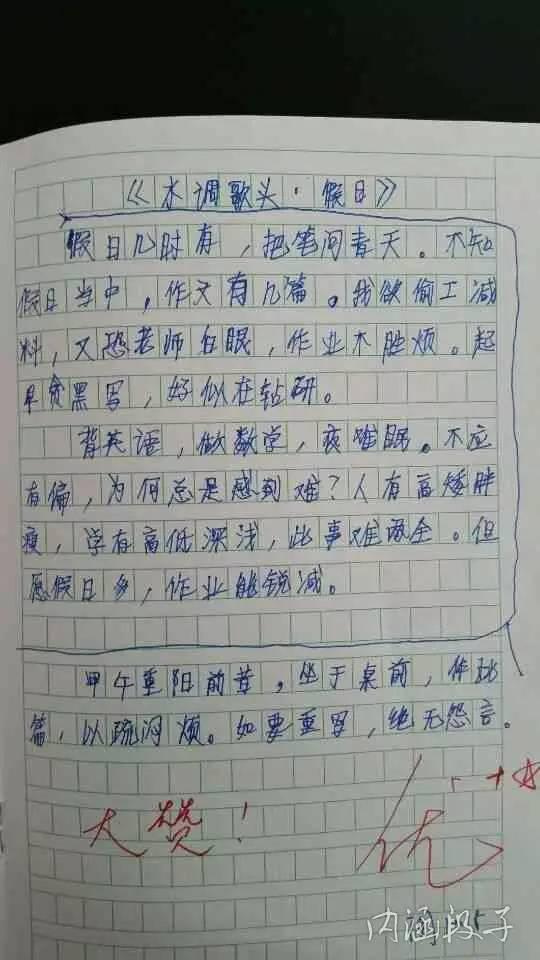 《水调歌头·假日》
假日几时有，把笔问青天。不知
假日当中，作文有几篇。我欲偷工减
料，又恐老师白眼，作业不胜烦。起
早贪黑写，好似在钻研。
背英语，做数学，夜难眠。不应
有偏，为何总是感到难？人有高矮胖
瘦，学有高低深浅，此事难两全。但
愿假日多，作业能锐减。
甲午重阳前昔，坐于桌前，作此
篇，以疏闷烦。如要重写，绝无怨言。
大赞！
优
内涵段子